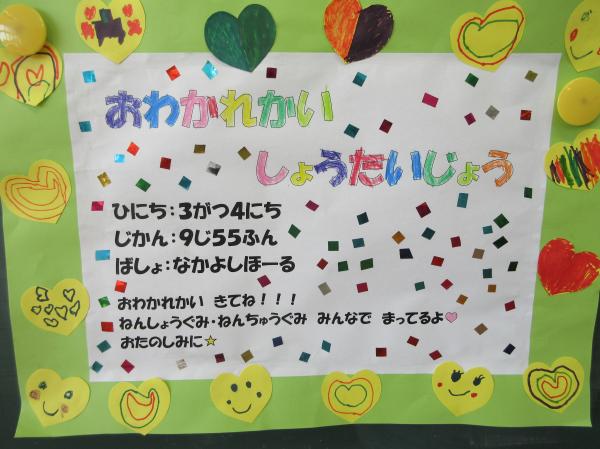 おわかれかい
しょうたいじょう
ひにち：3がつ4にち
じかん：9じ55ふん
ばしょ：なかよしほーる
おわかれかい きてね！！！
ねんしょうぐみ・ねんちゅうぐみ みんなで まってるよ♡
おたのしみに☆